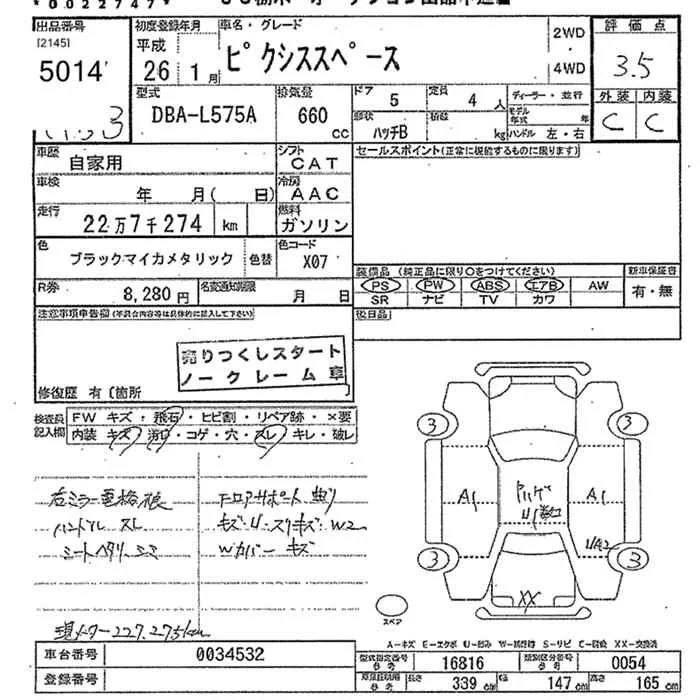 *0022747*
出品番号
[2145]
5014
初度登録年月
平成
26 1月
車名・グレード
ピクシススペース
2WD
4WD
評価点
3.5
型式
DBA-L575A
排気量
660
cc
ドア
5
定員
4 人
ディーラー・並行
モデル年式 年
外装 内装
C C
形状
ハッチB
積載
kg
ハンドル 左・右
車歴
自家用
シフト
CAT
セールスポイント(正常に機能するものに限ります)
車検
年 月( 日)
冷房
AAC
走行
22万7千274 km
燃料
ガソリン
色
ブラックマイカメタリック
色替
色コード
X07
装備品 (純正品に限り○をつけてください)
新車保証書
PS PW ABS エアB AW
有・無
SR ナビ TV カワ
R券
8,280円
名変通知期限
月 日
注意事項申告欄(不具合内容等は具体的に記入して下さい)
後日品
売りつくしスタート
ノークレーム車
修復歴 有〔箇所 〕
検査員
記入欄
FW キズ・飛石・ヒビ割・リペア跡・×要
内装 キズ・汚レ・コゲ・穴・スレ・キレ・破レ
ハンドル スレ
フロアサポート 曲り
Wカバー キズ
現メーター227.275km
3 3
A1 A1
3 3
XX
スペア
A-キズ E-エクボ U-凹み W-補修跡 S-サビ C-腐食 XX-交換済
車台番号
0034532
型式指定番号
参考
16816
類別区分番号
参考
0054
登録番号
長さ
339 cm
幅
147 cm
高さ
165 cm